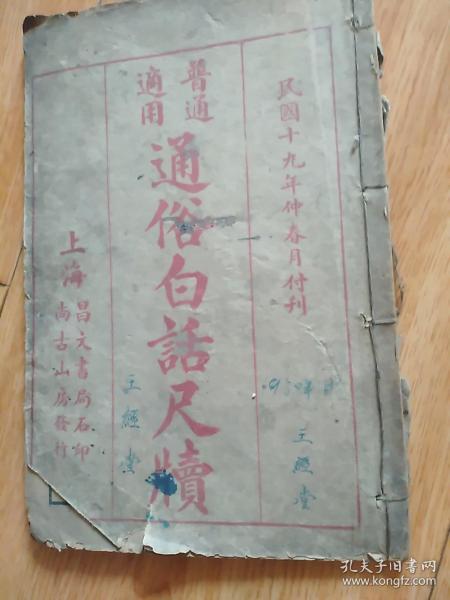 民國十九年仲春月付刊
普通
適用
通俗白話尺牘
上海
昌文書局石印
尚古山房發行
王經堂
王經堂
孔夫子旧书网
www.kongfz.com